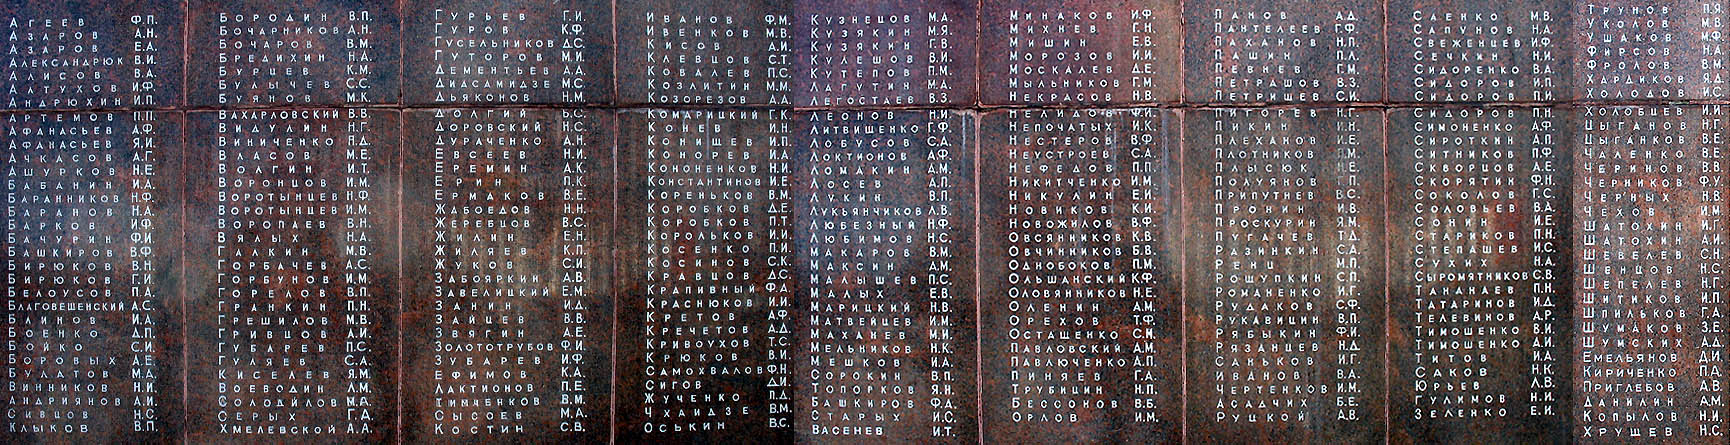 АГЕЕВ Ф.П.
АЗАРОВ А.Н.
АЗАРОВ Е.А.
АЛЕКСАНДРЮК В.И.
АЛИСОВ В.А.
АЛТУХОВ И.Ф.
АНДРЮХИН И.П.
АРТЕМОВ П.П.
АФАНАСЬЕВ А.Ф.
АФАНАСЬЕВ Я.И.
АЧКАСОВ А.Г.
АШУРКОВ Н.Е.
БАБАНИН И.А.
БАРАННИКОВ Н.Ф.
БАРАНОВ Н.А.
БАРКОВ И.Ф.
БАЧУРИН Ф.И.
БАШКИРОВ В.Ф.
БИРЮКОВ В.Н.
БИРЮКОВ Г.И.
БЕЛОУСОВ П.Д.
БЛАГОВЕЩЕНСКИЙ А.С.
БЛИНОВ И.А.
БОЕНКО Д.П.
БОЙКО С.И.
БОРОВЫХ А.Е.
БУЛАТОВ М.Д.
ВИННИКОВ Н.И.
АНДРИЯНОВ А.И.
СИВЦОВ Н.С.
КЛЫКОВ В.П.
БОРОДИН В.П.
БОЧАРНИКОВ А.Н.
БОЧАРОВ В.М.
БРЕДИХИН Н.А.
БУРЦЕВ К.М.
БУЛЫЧЕВ С.С.
БУЯНОВ М.К.
ВАХАРЛОВСКИЙ В.В.
ВИДУЛИН Н.Г.
ВИНИЧЕНКО П.Д.
ВЛАСОВ М.Е.
ВОЛГИН И.Т.
ВОРОНЦОВ И.М.
ВОРОТЫНЦЕВ Н.Ф.
ВОРОТЫНЦЕВ И.М.
ВОРОПАЕВ В.Н.
ВЯЛЫХ Н.А.
ГАЛКИН М.В.
ГОРБАЧЕВ А.С.
ГОРБУНОВ И.М.
ГОРЕЛОВ В.П.
ГРАНКИН П.Н.
ГРЕШИЛОВ М.В.
ГРИВЦОВ А.И.
ГУБАРЕВ П.С.
ГУЛЯЕВ С.А.
КИСЕЛЕВ Я.М.
ВОЕВОДИН Л.М.
СОЛОДИЛОВ М.А.
СЕРЫХ Г.А.
ХМЕЛЕВСКОЙ А.А.
ГУРЬЕВ Г.И.
ГУРОВ К.Ф.
ГУСЕЛЬНИКОВ Д.С.
ГУТОРОВ М.И.
ДЕМЕНТЬЕВ А.А.
ДИАСАМИДЗЕ М.С.
ДЬЯКОНОВ Н.М.
ДОЛГИЙ Б.С.
ДОРОВСКИЙ Н.С.
ДУРАЧЕНКО А.Н.
ЕВСЕЕВ Н.И.
ЕРЕМИН А.К.
ЕРИН П.К.
ЕРМАКОВ В.Е.
ЖАБОЕДОВ Н.Н.
ЖЕРЕБЦОВ В.С.
ЖИЛИН Е.Н.
ЖИЛЯЕВ Н.Д.
ЖУКОВ С.И.
ЗАБОЯРКИН Д.В.
ЗАВЕЛИЦКИЙ Е.М.
ЗАНИН И.Д.
ЗАЙЦЕВ В.В.
ЗВЯГИН А.Е.
ЗОЛОТОТРУБОВ Ф.И.
ЗУБАРЕВ И.Ф.
ЕФИМОВ К.А.
ЛАКТИОНОВ П.Е.
ТИМАЕНКОВ М.М.
СЫСОЕВ М.А.
КОСТИН С.В.
ИВАНОВ Ф.М.
ИВЕНКОВ М.В.
КИСОВ А.И.
КЛЕВЦОВ С.Т.
КОВАЛЕВ П.С.
КОЗЛИТИН М.М.
КОЗОРЕЗОВ А.Д.
КОМАРИЦКИЙ Г.К.
КОНЕВ И.Н.
КОНИЩЕВ И.П.
КОНОРЕВ И.А.
КОНОНЕНКОВ Н.И.
КОНСТАНТИНОВ И.Е.
КОРЕНЬКОВ В.М.
КОРОБКОВ Д.Е.
КОРОБКОВ П.Т.
КОРОЛЬКОВ И.И.
КОСЕНКО П.И.
КОСИНОВ С.К.
КРАВЦОВ Д.С.
КРАПИВНЫЙ Ф.Д.
КРАСНЮКОВ И.И.
КРЕТОВ А.Ф.
КРЕЧЕТОВ А.Д.
КРИВОУХОВ Т.С.
КРЮКОВ В.И.
САМОХВАЛОВ Ф.Н.
СИГОВ Д.И.
ЖУЧЕНКО П.Д.
ЧХАИДЗЕ В.М.
ОСЬКИН В.С.
КУЗНЕЦОВ М.А.
КУЗЯКИН М.Я.
КУЗЯКИН Г.В.
КУЛЕШОВ В.И.
КУТЕПОВ П.М.
ЛАГУТИН М.А.
ЛЕГОСТАЕВ В.З.
ЛЕОНОВ Н.И.
ЛИТВИШЕНКО Г.Ф.
ЛОБУСОВ С.А.
ЛОКТИОНОВ А.Ф.
ЛОМАКИН А.М.
ЛОСЕВ А.П.
ЛУКИН В.П.
ЛУКЬЯНЧИКОВ Л.В.
ЛЮБЕЗНЫЙ Н.Ф.
ЛЮБИМОВ Н.С.
МАКАРОВ В.М.
МАКСИН А.М.
МАЛЫШЕВ П.С.
МАЛЫХ Е.В.
МАРИЦКИЙ Н.В.
МАТВЕЙЦЕВ И.М.
МАХАНЕВ М.И.
МЕЛЬНИКОВ Н.К.
МЕШКОВ И.А.
СОРОКИН В.П.
ТОПОРКОВ Я.Н.
БАШКИРОВ Ф.Д.
СТАРЫХ И.С.
ВАСЕНЕВ И.Т.
МИНАКОВ И.Ф.
МИХНЕВ Г.Н.
МИШИН Е.В.
МОРОЗОВ И.И.
МОСКАЛЕВ Д.Е.
МЫЛЬНИКОВ Г.М.
НЕКРАСОВ Н.В.
НЕЛИДОВ Ф.И.
НЕПОЧАТЫХ И.К.
НЕСТЕРОВ В.Ф.
НЕУСТРОЕВ С.А.
НЕФЕДОВ П.П.
НИКИТЧЕНКО И.М.
НИКУЛИН Е.И.
НОВИКОВ К.И.
НОВОЖИЛОВ В.Ф.
ОВСЯННИКОВ К.В.
ОВЧИННИКОВ В.В.
ОДНОБОКОВ П.М.
ОЛЬШАНСКИЙ К.Ф.
ОЛОВЯННИКОВ Н.Е.
ОЛЕНИН А.М.
ОРЕХОВ Т.Ф.
ОСТАШЕНКО С.М.
ПАВЛОВСКИЙ А.М.
ПАВЛЮЧЕНКО А.П.
ПИНЯЕВ Г.А.
ТРУБИЦИН Н.П.
БЕССОНОВ В.Е.
ОРЛОВ И.М.
ПАНОВ А.Д.
ПАНТЕЛЕЕВ Г.Ф.
ПАХАНОВ Н.П.
ПАШИН П.Л.
ПЕВНЕВ Г.М.
ПЕТРАШОВ В.З.
ПЕТРИЩЕВ С.И.
ПИГОРЕВ Н.Г.
ПИКИН И.Н.
ПЛЕХАНОВ И.Е.
ПЛОТНИКОВ Р.М.
ПЛЫСЮК Н.Е.
ПОЛУЯНОВ Г.П.
ПРИПУТНЕВ В.С.
ПРОНИН М.В.
ПРОСКУРИН Я.М.
ПУГАЧЕВ Т.Д.
РАЗИНКИН С.Д.
РЕНЦ М.П.
РОЩУПКИН С.П.
РОМАНЕНКО И.Г.
РУДАКОВ С.Ф.
РУКАВИЦИН В.П.
РЯБЫКИН Ф.И.
РЯЗАНЦЕВ Н.Д.
САЛЬКОВ И.Г.
АЙВАНОВ В.А.
ЧЕРТЕНКОВ И.М.
АСАДЧИХ Б.Г.
РУЦКОЙ А.В.
САЕНКО М.В.
САПУНОВ Н.Д.
СВЕЖЕНЦЕВ И.Ф.
СЕЧКИН Н.И.
СИДОРЕНКО В.А.
СИДОРОВ П.П.
СИДОРОВ П.И.
СИДОРОВ П.Н.
СИМОНЕНКО А.Ф.
СИРОТКИН А.П.
СИТНИКОВ П.Ф.
СКВОРЦОВ А.Е.
СКОРЯТИН Ф.Г.
СОКОЛОВ Г.С.
СОЛОВЬЕВ В.А.
СОНИН И.Е.
СТАРИКОВ П.Н.
СТЕПАШЕВ И.С.
СУХИХ Н.А.
СЫРОМЯТНИКОВ С.В.
ТАНДАНАЕВ П.Н.
ТАТАРИНОВ И.Д.
ТЕЛЕВИНОВ А.Р.
ТИМОШЕНКО В.И.
ТИМОШЕНКО А.И.
ТИТОВ И.А.
САКОВ Н.К.
ЮРЬЕВ Л.В.
ГУЛИМОВ Н.И.
ЗЕЛЕНКО Е.И.
ТРУНОВ П.Я.
УКОЛОВ М.В.
УШАКОВ М.Ф.
ФИРСОВ Н.А.
ХАРДИКОВ Я.Д.
ХОЛОДОВ И.С.
ХОЛОБЦЕВ И.И.
ЦЫГАНОВ Н.Г.
ЦЫГАНКОВ В.Е.
ЧАЛЕНКО В.Е.
ЧЕРИНОВ В.В.
ЧЕРНИКОВ Ф.У.
ЧЕРНЫХ Н.В.
ЧЕХОВ И.М.
ШАТОХИН И.Г.
ШАТОХИН А.И.
ШЕВЕЛЕВ С.Н.
ШЕНЦОВ Н.С.
ШЕПЕЛЕВ Н.Г.
ШИТИКОВ И.П.
ШПИЛЬКОВ Г.А.
ШУМАКОВ З.Е.
ШУМСКИХ А.Д.
ЕМЕЛЬЯНОВ Д.И.
КИРИЧЕНКО П.А.
ПРИГЛЕБОВ А.В.
ДАНИЛИН А.М.
КОПЫЛОВ Н.И.
ХРУЩЕВ Н.С.